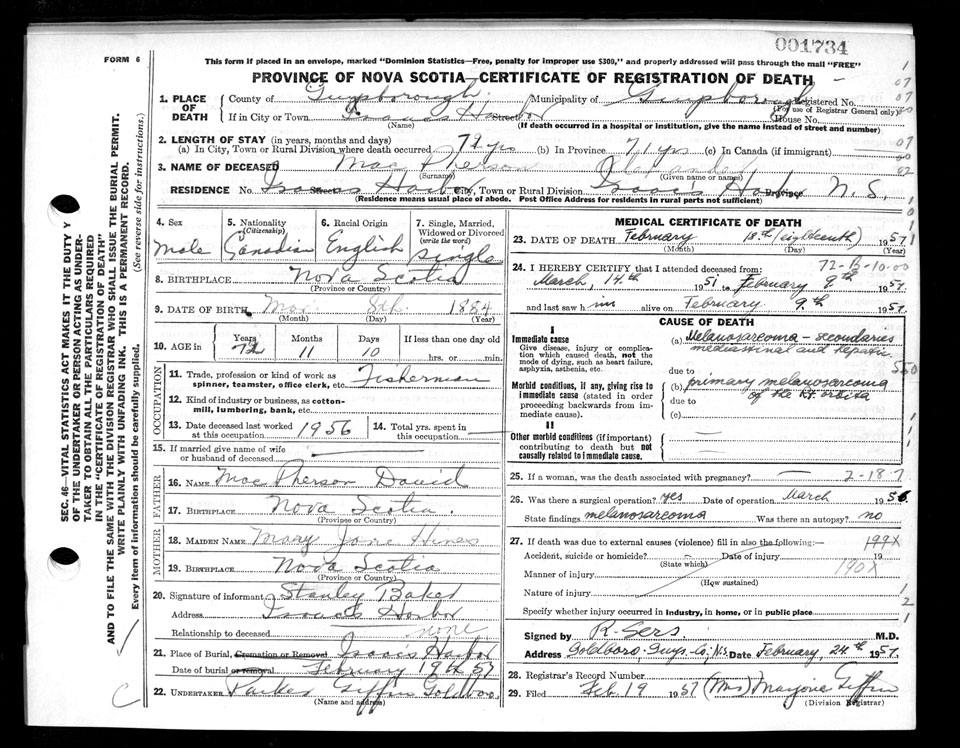 001734
FORM 6
This form if placed in an envelope, marked "Dominion Statistics—Free, penalty for improper use $300," and properly addressed will pass through the mail "FREE"
PROVINCE OF NOVA SCOTIA—CERTIFICATE OF REGISTRATION OF DEATH
SEC. 46—VITAL STATISTICS ACT MAKES IT THE DUTY
OF THE UNDERTAKER OR PERSON ACTING AS UNDER-
TAKER TO OBTAIN ALL THE PARTICULARS REQUIRED
IN THE "CERTIFICATE OF REGISTRATION OF DEATH"
AND TO FILE THE SAME WITH THE DIVISION REGISTRAR WHO SHALL ISSUE THE BURIAL PERMIT.
WRITE PLAINLY WITH UNFADING INK. THIS IS A PERMANENT RECORD.
Every item of information should be carefully supplied. (See reverse side for instructions.)
1. PLACE OF DEATH
County of Guysborough Municipality of Guysborough Registered No.
(For use of Registrar General only)
If in City or Town Isaacs Harbor Street House No.
(Name) (If death occurred in a hospital or institution, give the name instead of street and number)
2. LENGTH OF STAY (in years, months and days)
(a) In City, Town or Rural Division where death occurred 72 yrs (b) In Province 71 yrs (c) In Canada (if immigrant)
3. NAME OF DECEASED Mac Pherson
(Given name or names)
RESIDENCE No. Isaacs Harbor Street City, Town or Rural Division Isaac's Harbor Province N.S.
(Residence means usual place of abode. Post Office Address for residents in rural parts not sufficient)
4. Sex Male
5. Nationality (Citizenship) Canadian
6. Racial Origin English
7. Single, Married, Widowed or Divorced (write the word) single
8. BIRTHPLACE Nova Scotia
(Province or Country)
9. DATE OF BIRTH 8th 1884
(Month) (Day) (Year)
10. AGE in Years 72 Months 11 Days 10 If less than one day old hrs. or min.
OCCUPATION
11. Trade, profession or kind of work as spinner, teamster, office clerk, etc. Fisherman
12. Kind of industry or business, as cotton-mill, lumbering, bank, etc.
13. Date deceased last worked at this occupation 1956
14. Total yrs. spent in this occupation
15. If married give name of wife or husband of deceased
FATHER
16. NAME Mac Pherson David
17. BIRTHPLACE Nova Scotia.
(Province or Country)
MOTHER
18. MAIDEN NAME Mary Jane Hines
19. BIRTHPLACE Nova Scotia
(Province or Country)
20. Signature of informant Stanley Baker
Address Isaac's Harbor
Relationship to deceased none
21. Place of Burial, Cremation or Removal Isaac's Harbor
Date of burial or removal February 19th 57
22. UNDERTAKER Parker Giffin Goldboro
(Name and address)
MEDICAL CERTIFICATE OF DEATH
23. DATE OF DEATH February 18th (eighteenth) 1957
(Month) (Day) (Year)
72-B-10-00
24. I HEREBY CERTIFY that I attended deceased from:
March, 14th 1951 to February 9th 1957
and last saw him alive on February 9th 1957
CAUSE OF DEATH
I
Immediate cause
Give disease, injury or complication which caused death, not the mode of dying, such as heart failure, asphyxia, asthenia, etc.
(a) Melanosarcoma - secondaries
mediastinal and hepatic
due to
Morbid conditions, if any, giving rise to immediate cause (stated in order proceeding backwards from immediate cause).
(b) primary melanosarcoma
of the Rt orbita
due to
(c)
II
Other morbid conditions (if important) contributing to death but not causally related to immediate cause.
25. If a woman, was the death associated with pregnancy? 2-18-7
26. Was there a surgical operation? yes Date of operation March 1956
State findings melanosarcoma Was there an autopsy? no
27. If death was due to external causes (violence) fill in also the following:— 199X
Accident, suicide or homicide? Date of injury 19
(State which) 190X
Manner of injury
(How sustained)
Nature of injury
Specify whether injury occurred in industry, in home, or in public place
Signed by R. Sers. M.D.
Address Goldboro, Guys. Co, N.S. Date February, 24th 1957
28. Registrar's Record Number
29. Filed Feb 19 1957 (Mrs) Marjorie Giffin
(Division Registrar)
C